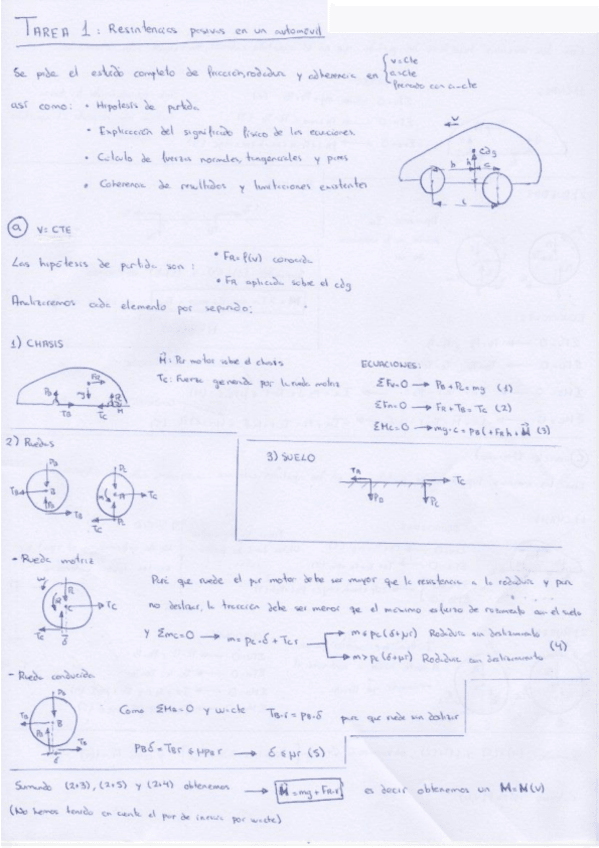 TAREA 1: Resistencias pasivas en un automóvil
Se pide el estudio completo de fricción, rodadura y adherencia en { v=cte
a=cte
frenado con a=cte
así como: • Hipótesis de partida
• Explicación del significado físico de las ecuaciones
• Cálculo de fuerzas normales, tangenciales y pares
• Coherencia de resultados y limitaciones existentes
v
cdg
b h c
a) V=CTE
Las hipótesis de partida son: • FR=f(v) conocida
• FR aplicada sobre el cdg
Analizaremos cada elemento por separado:
1) CHASIS
M: Par motor sobre el chasis
Tc: Fuerza generada por la rueda motriz
ECUACIONES:
ΣFv=0 → PB+Pc=mg (1)
ΣFH=0 → FR+TB=Tc (2)
ΣMc=0 → mg·c=PB l+FR h+M (3)
2) Ruedas
3) SUELO
TB Tc
PB Pc
- Rueda motriz
Para que ruede el par motor debe ser mayor que la resistencia a la rodadura y para
no deslizar, la tracción debe ser menor que el máximo esfuerzo de rozamiento con el suelo
y ΣMc=0 → m=Pc·δ+Tc r
m≤Pc(δ+μr) Rodadura sin deslizamiento
m>Pc(δ+μr) Rodadura con deslizamiento (4)
- Rueda conducida
Como ΣMB=0 y w=cte TB·r=PB·δ para que ruede sin deslizar
PBδ=TBr≤μPBr → δ≤μr (5)
Sumando (2+3), (2+5) y (2+4) obtenemos → M=mg+FR·r es decir obtenemos un M=M(v)
(No hemos tenido en cuenta el par de inercia por w=cte)